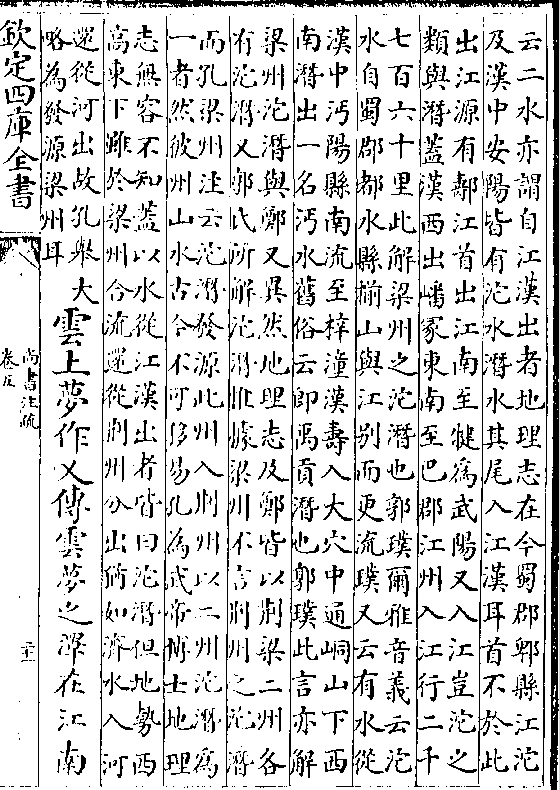 云二水亦謂自江漢出者地理志在今蜀郡郫縣江沱
及漢中安陽皆有沱水潛水其尾入江漢耳首不於此
出江源有鄩江首出江南至犍為武陽又入江豈沱之
類與潛蓋漢西出嶓冢東南至巴郡江州入江行二千
七百六十里此解梁州之沱潛也郭璞爾雅音義云沱
水自蜀郡都水縣揃山與江别而更流璞又云有水從
漢中沔陽縣南流至梓潼漢壽入大穴中通峒山下西
南潛出一名沔水舊俗云即禹貢潛也郭璞此言亦解
梁州沱潛與鄭又異然地理志及鄭皆以荆梁二州各
有沱潛又郭氏所解沱潛惟據梁州不言荆州之沱潛
而孔梁州注云沱潛發源此州入荆州以二州沱潛為
一者然彼州山水古今不可移易孔為武帝博士地理
志無容不知蓋以水從江漢出者皆曰沱潛但地勢西
高東下雖於梁州合流還從荆州分出猶如濟水入河
還從河出故孔舉大
略為發源梁州耳
雲土夢作乂傳雲夢之澤在江南
欽定四庫全書
尚書注疏
卷五